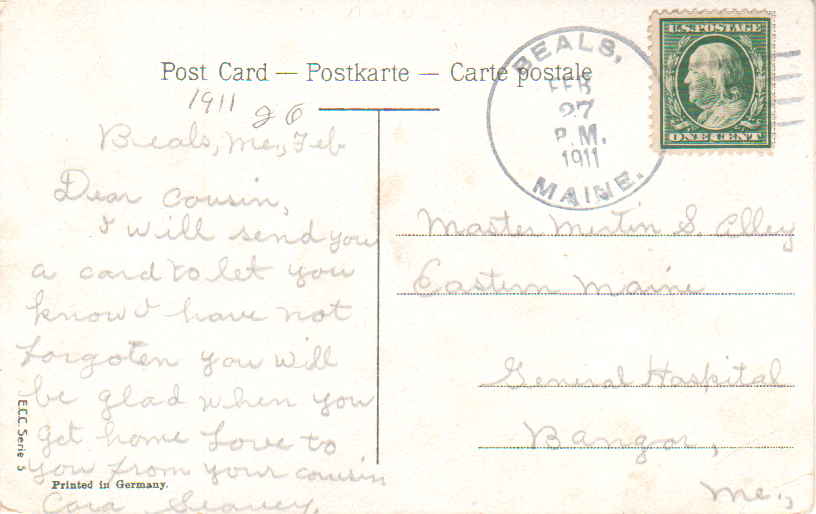 Post Card — Postkarte — Carte postale
1911
26
Beals, Me., Feb.
Dear Cousin,
I will send you
a card to let you
know I have not
forgoten you will
be glad when you
get home Love to
you from your cousin
Cora Seavey.
E.C.C. Serie 5
Printed in Germany.
BEALS,
FEB
27
P.M.
1911
MAINE.
U.S. POSTAGE
ONE CENT
Master Mertin S. Alley
Eastern Maine
General Hospital
Bangor,
Me.,